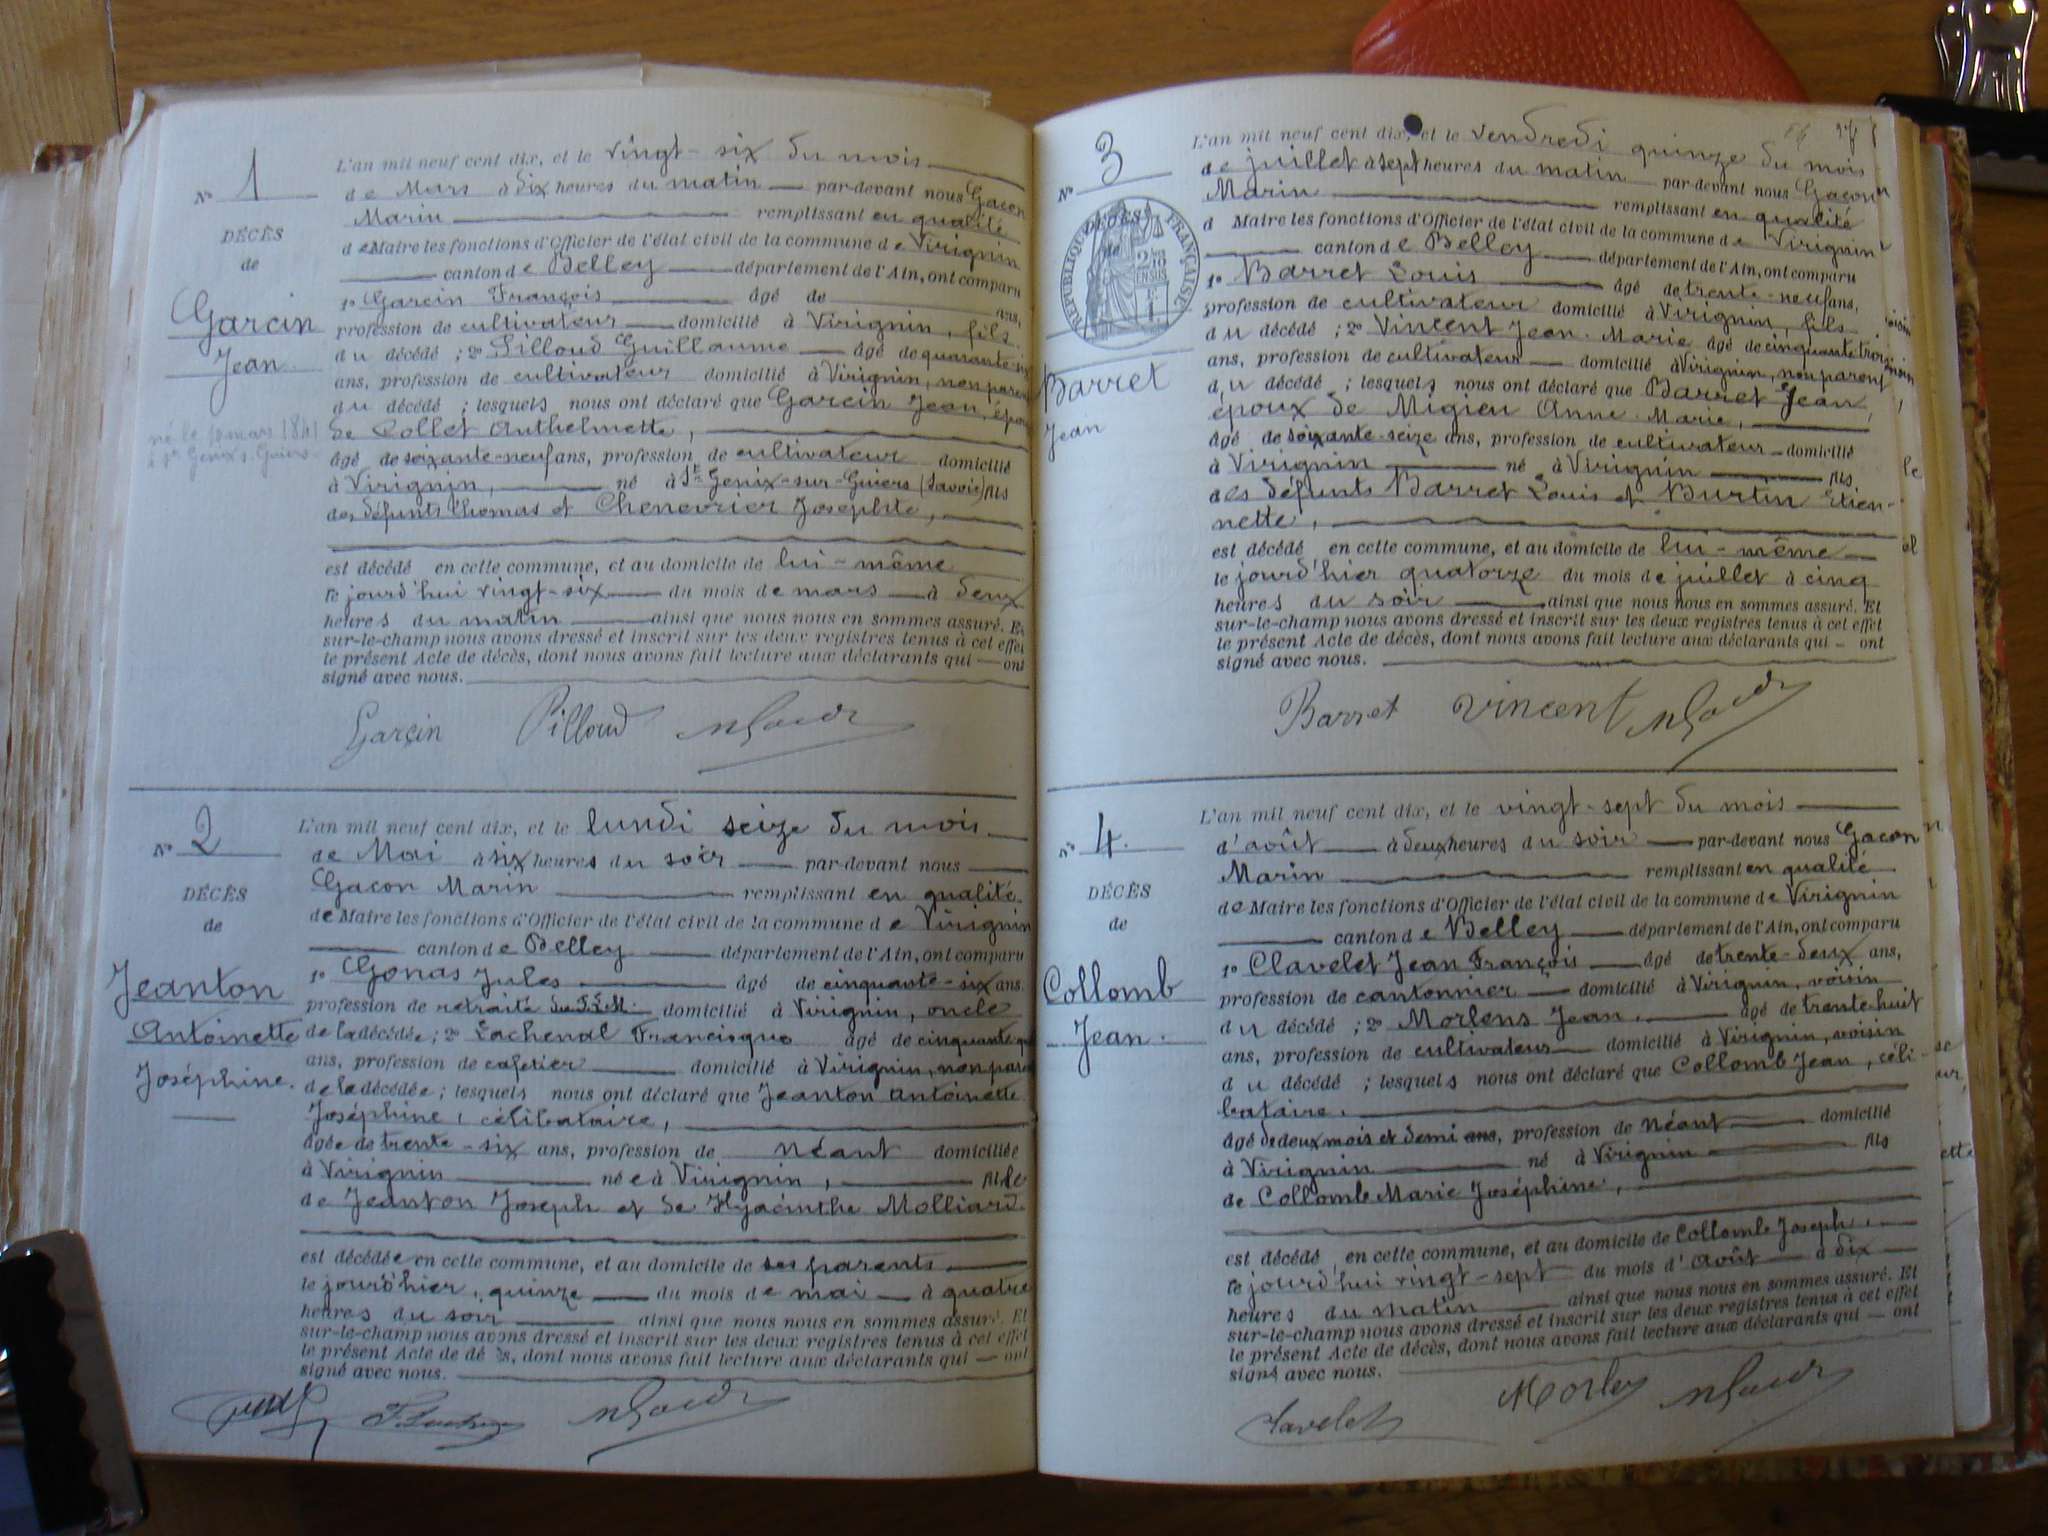 N° 1
DÉCÈS
de
Garcin
Jean.
né le 10 mars 1841
à St Genix s. Guiers.
L'an mil neuf cent dix, et le vingt-six du mois
de Mars à dix heures du matin par-devant nous Gacon
Marin remplissant en qualité
de Maire les fonctions d'Officier de l'état civil de la commune de Virignin
canton de Belley département de l'Ain, ont comparu
1° Garcin François âgé de ans,
profession de cultivateur domicilié à Virignin, fils
du décédé ; 2° Pilloud Guillaume âgé de quarante-
ans, profession de cultivateur domicilié à Virignin, non parent
du décédé ; lesquels nous ont déclaré que Garcin Jean, époux
de Collet Anthelmette,
âgé de soixante-neuf ans, profession de cultivateur domicilié
à Virignin, né à St Genix-sur-Guiers (Savoie) fils
des défunts Thomas et Chenevrier Josephte,
est décédé en cette commune, et au domicile de lui-même
le jourd'hui vingt-six du mois de mars à deux
heures du matin ainsi que nous nous en sommes assuré. Et
sur-le-champ nous avons dressé et inscrit sur les deux registres tenus à cet effet
le présent Acte de décès, dont nous avons fait lecture aux déclarants qui — ont
signé avec nous.
Garçin Pilloud MGacon
N° 2
DÉCÈS
de
Jeanton
Antoinette
Joséphine.
L'an mil neuf cent dix, et le lundi seize du mois
de Mai à six heures du soir par-devant nous
Gacon Marin remplissant en qualité
de Maire les fonctions d'Officier de l'état civil de la commune de Virignin
canton de Belley département de l'Ain, ont comparu
1° Gonas Jules âgé de cinquante-six ans.
profession de retraité du P.L.M. domicilié à Virignin, oncle
de la décédée; 2° Lachenal Francisque âgé de cinquante
ans, profession de cafetier domicilié à Virignin, non parent
de la décédée ; lesquels nous ont déclaré que Jeanton Antoinette
Joséphine, célibataire,
âgée de trente-six ans, profession de néant domiciliée
à Virignin née à Virignin, fille
de Jeanton Joseph et de Hyacinthe Molliard.
est décédée en cette commune, et au domicile de ses parents
le jourd'hier, quinze du mois de mai à quatre
heures du soir ainsi que nous nous en sommes assuré. Et
sur-le-champ nous avons dressé et inscrit sur les deux registres tenus à cet effet
le présent Acte de décès, dont nous avons fait lecture aux déclarants qui — ont
signé avec nous.
MGacon
N° 3
RÉPUBLIQUE FRANÇAISE
Barret
Jean
L'an mil neuf cent dix, et le vendredi quinze du mois
de juillet à sept heures du matin par-devant nous Gacon
Marin remplissant en qualité
d Maire les fonctions d'Officier de l'état civil de la commune de Virignin
canton de Belley département de l'Ain, ont comparu
1° Barret Louis âgé de trente-neuf ans,
profession de cultivateur domicilié à Virignin, fils
du décédé ; 2° Vincent Jean-Marie âgé de cinquante-trois
ans, profession de cultivateur domicilié à Virignin, non parent
du décédé ; lesquels nous ont déclaré que Barret Jean,
époux de Migieu Anne-Marie,
âgé de soixante-seize ans, profession de cultivateur domicilié
à Virignin né à Virignin fils
des défunts Barret Louis et Burtin Etien-
nette,
est décédé en cette commune, et au domicile de lui-même
le jourd'hier quatorze du mois de juillet à cinq
heures du soir ainsi que nous nous en sommes assuré. Et
sur-le-champ nous avons dressé et inscrit sur les deux registres tenus à cet effet
le présent Acte de décès, dont nous avons fait lecture aux déclarants qui — ont
signé avec nous.
Barret Vincent MGacon
N° 4.
DÉCÈS
de
Collomb
Jean.
L'an mil neuf cent dix, et le vingt-sept du mois
d'août à deux heures du soir par-devant nous Gacon
Marin remplissant en qualité
de Maire les fonctions d'Officier de l'état civil de la commune de Virignin
canton de Belley département de l'Ain, ont comparu
1° Clavelet Jean François âgé de trente-deux ans,
profession de cantonnier domicilié à Virignin, voisin
du décédé ; 2° Morlens Jean, âgé de trente-huit
ans, profession de cultivateur domicilié à Virignin, voisin
du décédé ; lesquels nous ont déclaré que Collomb Jean, céli-
bataire,
âgé de deux mois et demi ans, profession de néant domicilié
à Virignin né à Virignin fils
de Collomb Marie Joséphine,
est décédé en cette commune, et au domicile de Collomb Joseph,
le jourd'hui vingt-sept du mois d'Août à dix
heures du matin ainsi que nous nous en sommes assuré. Et
sur-le-champ nous avons dressé et inscrit sur les deux registres tenus à cet effet
le présent Acte de décès, dont nous avons fait lecture aux déclarants qui — ont
signé avec nous.
Clavelet MGacon